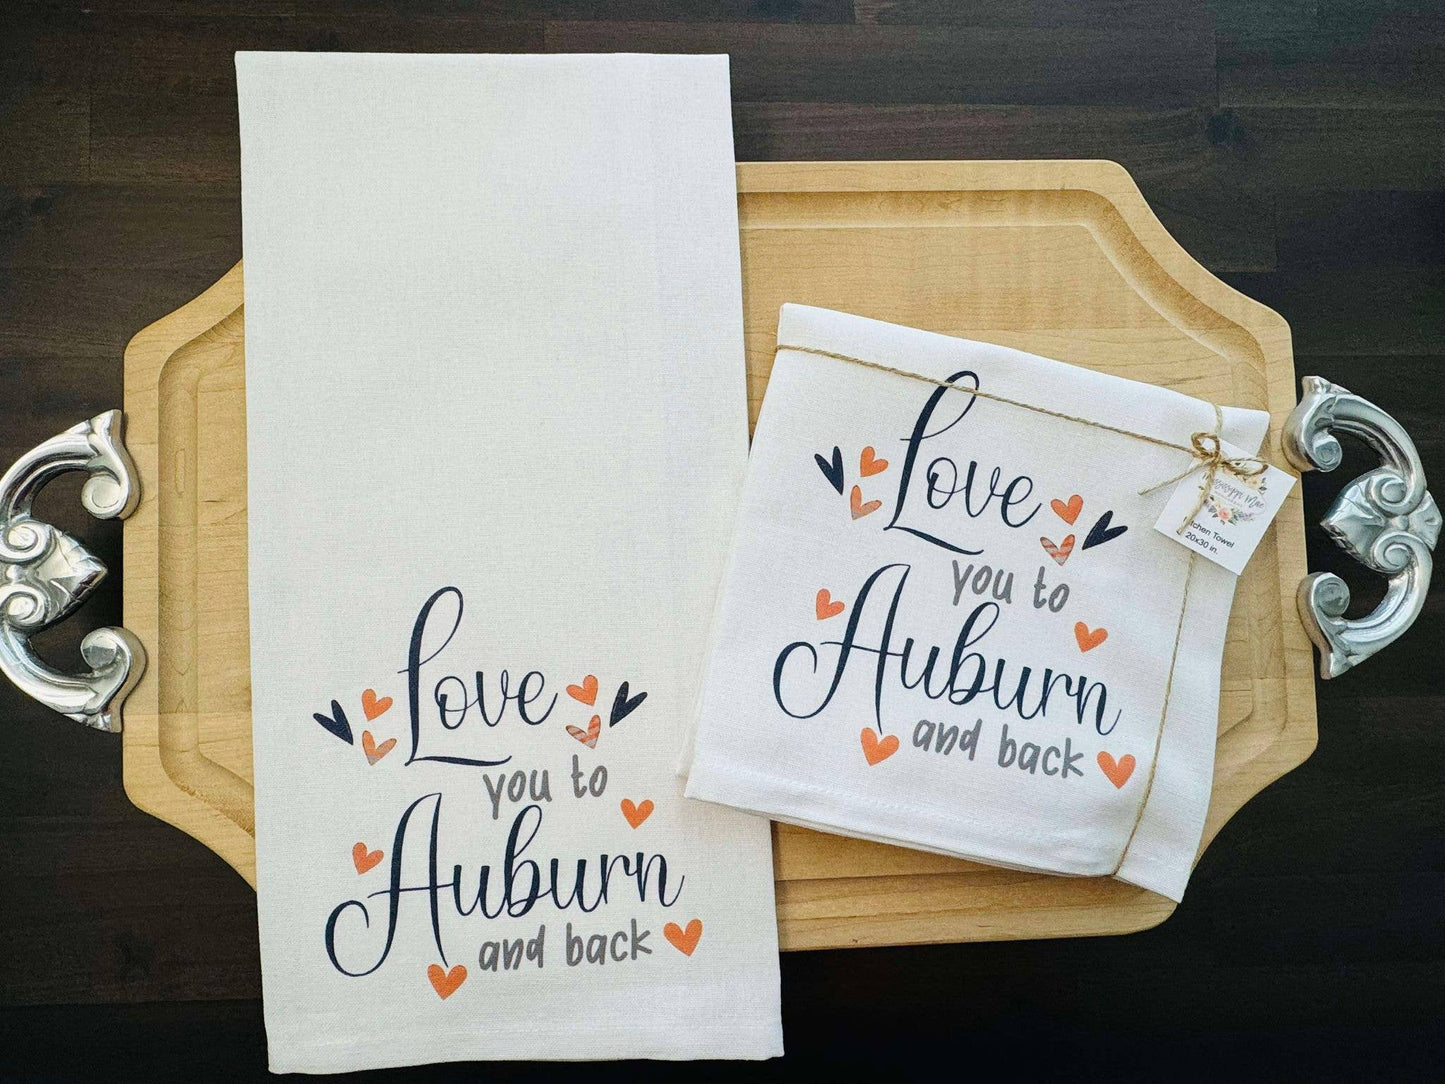 Love
you to
Auburn
and back
Love
you to
Auburn
and back
Mae
Towel
20x30 in.